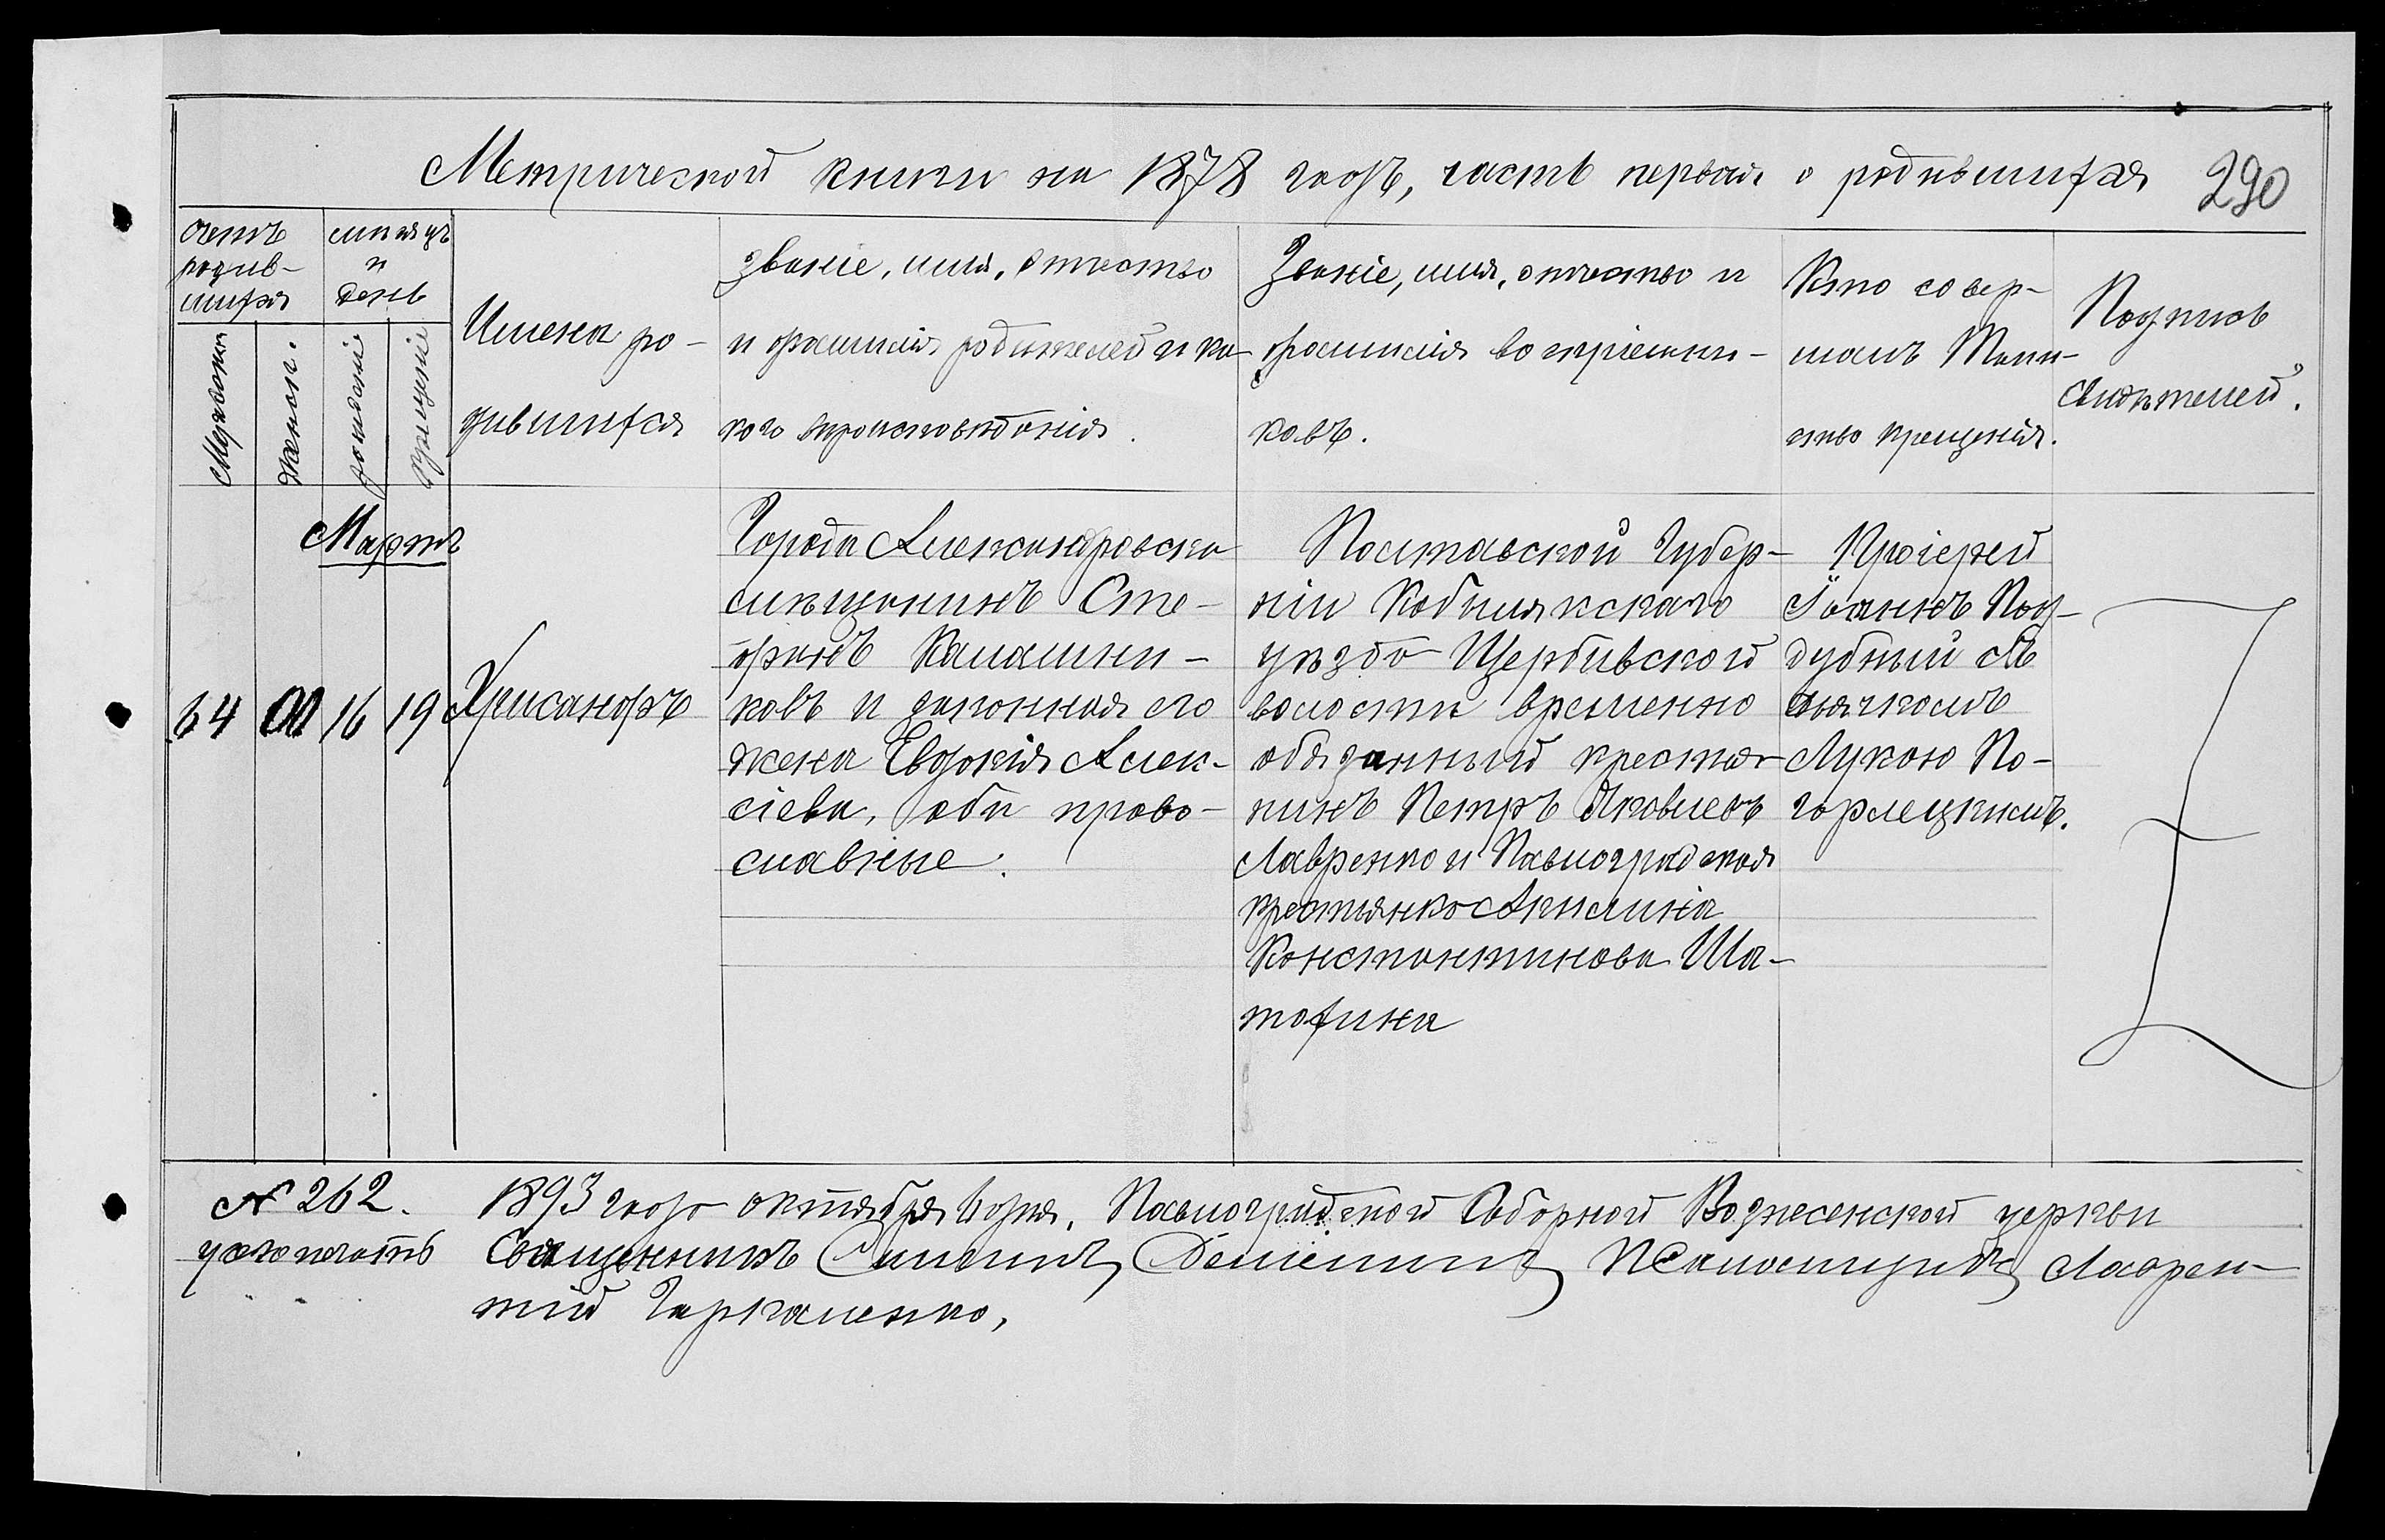 Метрической книги на 1878 годъ, часть первая о родившихся 290
счетъ
родив-
шихся
мѣсяцъ
и
день
Мужеска
Женск.
рожденіе
крещеніе
Имена ро-
дившихся
званіе, имя, отчество
и фамилія родителей и ка-
кого вѣроисповѣданія.
Званіе, имя, отчество и
фамилія воспріемни-
ковъ.
Кто совер-
шалъ Таин-
ство крещенія.
Подпись
свидѣтелей.
Мартъ
64
16 19
Хрисанфъ
Города Александровска
мѣщанинъ Сте-
фанъ Калашни-
ковъ и законная его
жена Евдокія Алек-
сіева, оба право-
славные.
Полтавской Губер-
ніи Кобылякскаго
уѣзда Щербивской
волости временно
обязанный крестья-
нинъ Петръ Яковлевъ
Лавренко и Павлоградская
крестьянка Акилина
Константинова Ша-
тохина
Протоіерей
Іоаннъ Под-
дубный съ
дьячкомъ
Лукою По-
горлецкимъ.
N 262. 1893 года октября 6 дня. Павлоградской Соборной Вознесенской церкви
Священникъ Симеонъ Псаломщикъ Лаврен-
тій